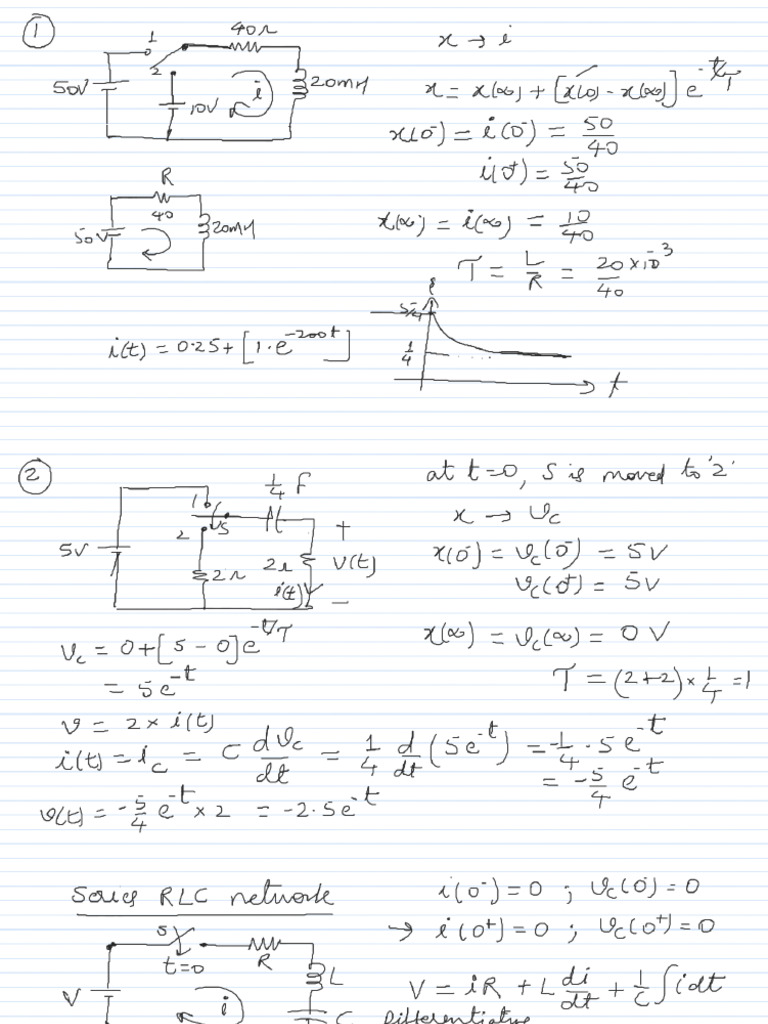 ①
1
40Ω
2
50V
10V
i
20mH
x → i
x = x(∞) + [x(0) - x(∞)] e^-t/T
x(0⁻) = i(0⁻) = 50/40
i(0⁺) = 50/40
R
40
50V
20mH
x(∞) = i(∞) = 10/40
T = L/R = 20×10⁻³/40
i(t) = 0.25 + [1·e^-200t]
i
5/4
1/4
t
②
1/4 F
1
2
S
5V
2Ω
2Ω
i(t)
+
V(t)
-
at t=0, S is moved to '2'
x → Vc
x(0⁻) = Vc(0⁻) = 5V
Vc(0⁺) = 5V
x(∞) = Vc(∞) = 0 V
T = (2+2) × 1/4 = 1
Vc = 0 + [5 - 0] e^-t/T
= 5e^-t
v = 2 × i(t)
i(t) = ic = C dVc/dt = 1/4 d/dt (5e^-t) = -1/4 · 5e^-t
= -5/4 e^-t
v(t) = -5/4 e^-t × 2 = -2.5e^-t
Series RLC network
i(0⁻) = 0 ; Vc(0⁻) = 0
→ i(0⁺) = 0 ; Vc(0⁺) = 0
S
t=0
R
L
V
i
C
V = iR + L di/dt + 1/C ∫ i dt